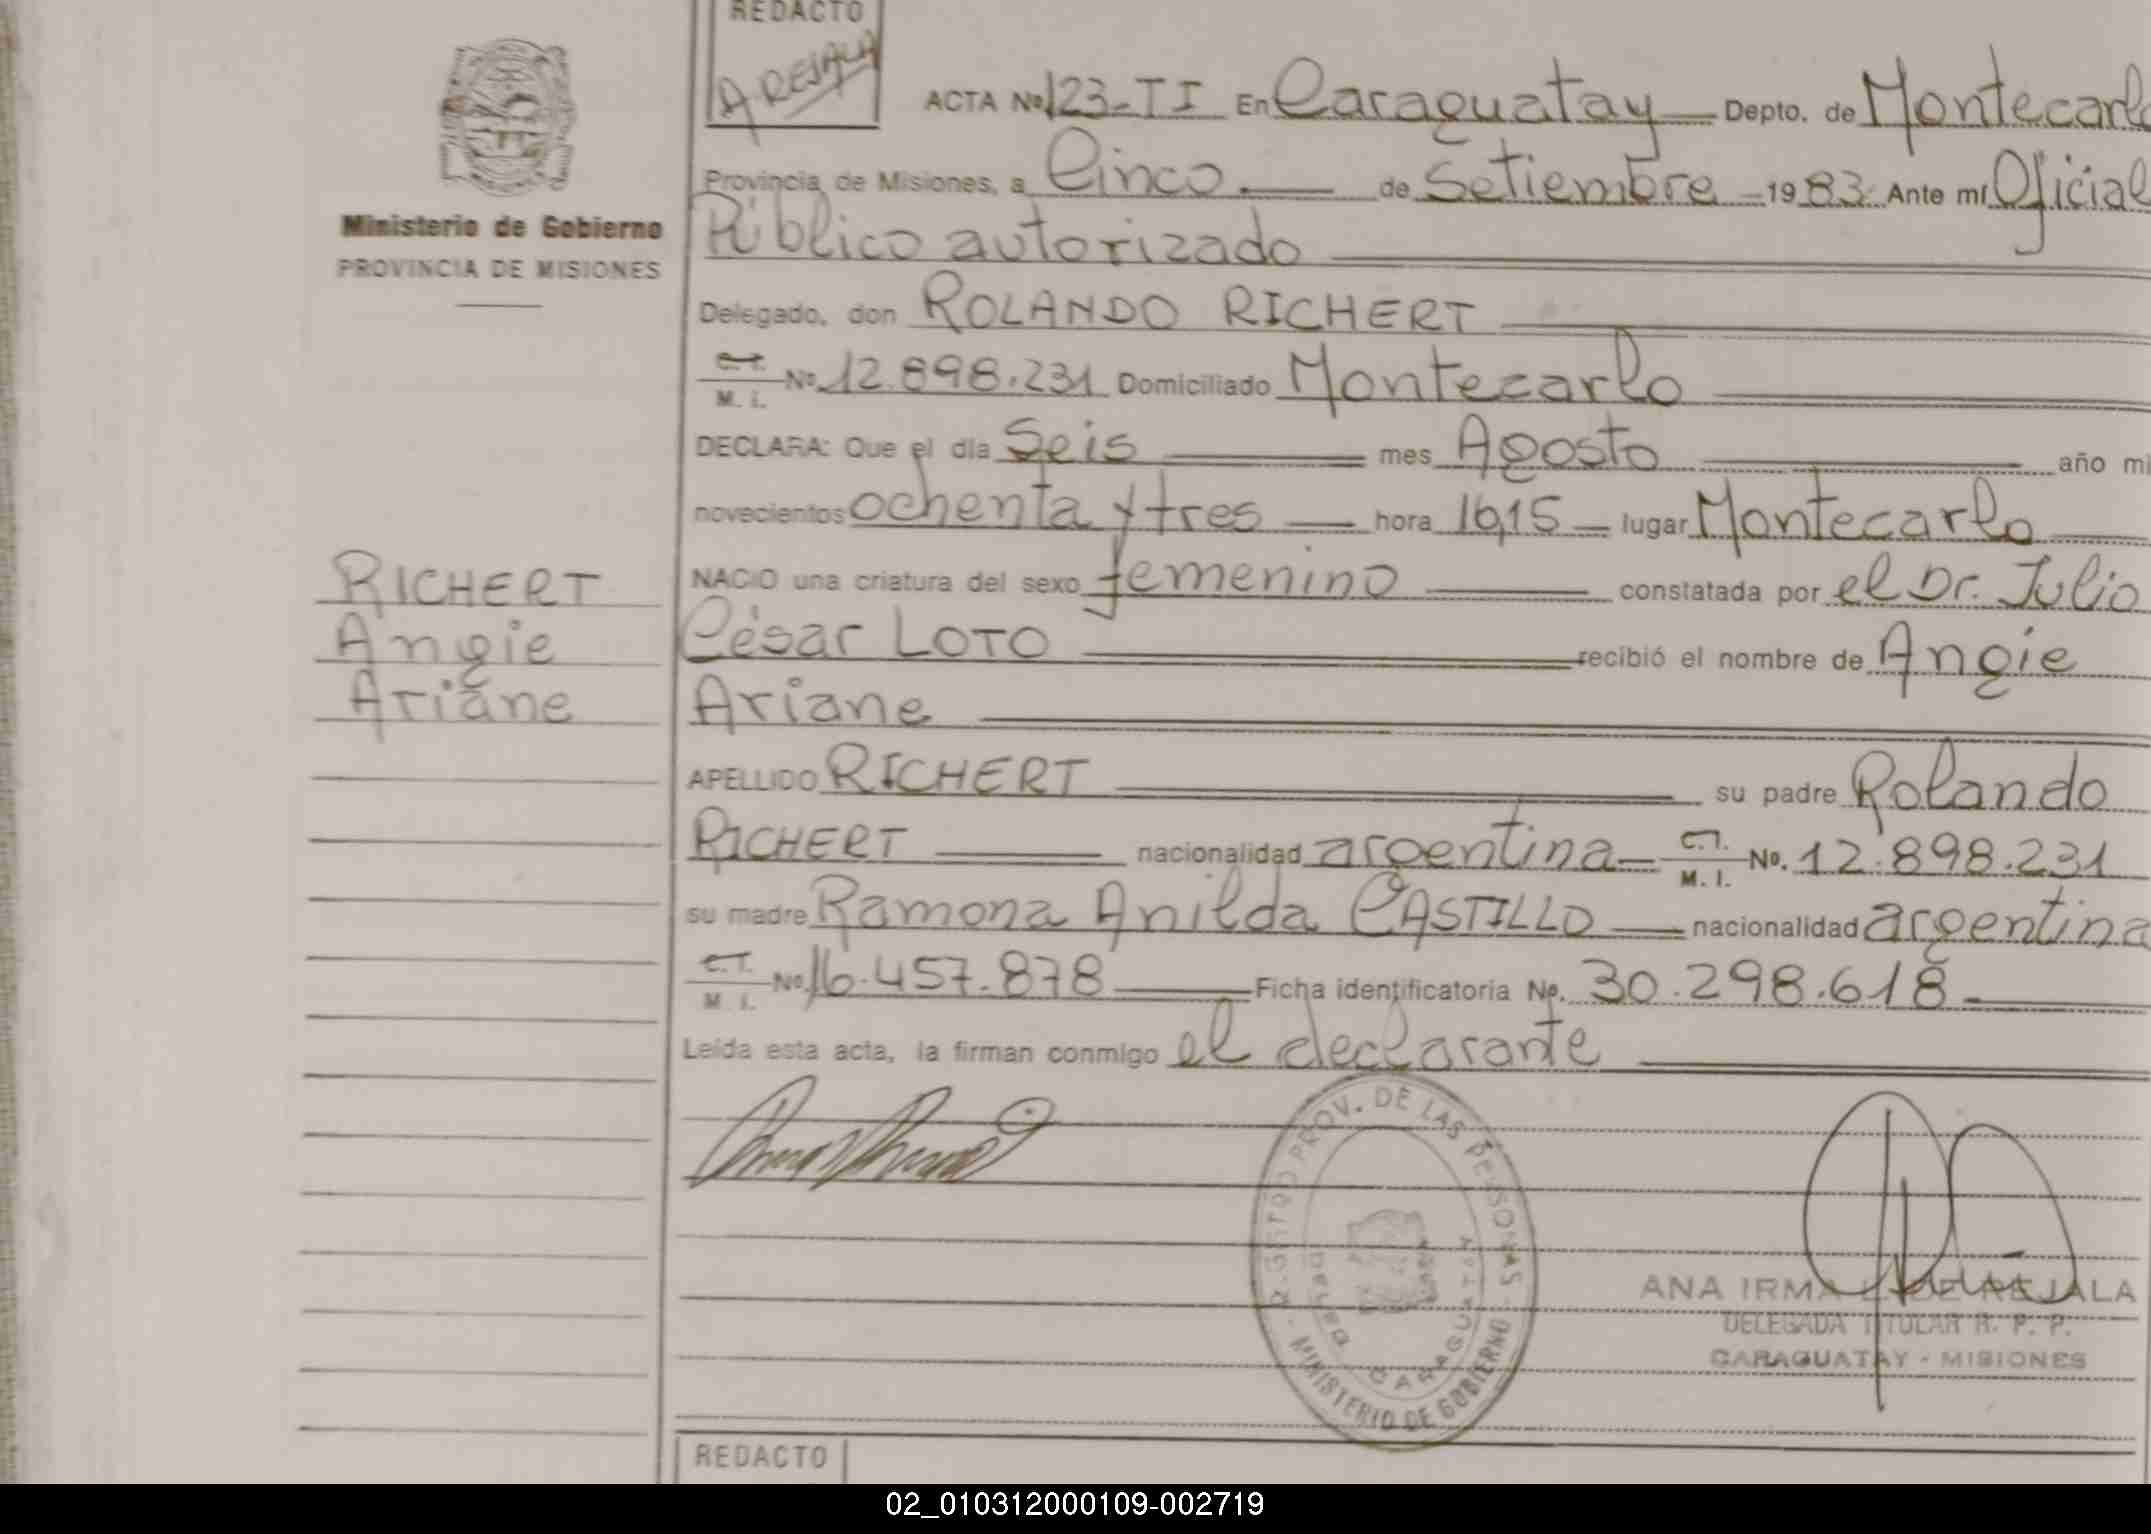 REDACTO
AREJALA
ACTA Nº 123-TI En Caraguatay Depto. de Montecarlo
Provincia de Misiones, a Cinco de Setiembre 1983 Ante mí Oficial
Público autorizado
Ministerio de Gobierno
PROVINCIA DE MISIONES
Delegado, don ROLANDO RICHERT
C.I. M. I. Nº 12.898.231 Domiciliado Montecarlo
DECLARA: Que el día Seis mes Agosto año mi
novecientos ochenta y tres hora 16,15 lugar Montecarlo
RICHERT
Angie
Ariane
NACIO una criatura del sexo femenino constatada por el Dr. Julio
César LOTO recibió el nombre de Angie
Ariane
APELLIDO RICHERT su padre Rolando
RICHERT nacionalidad argentina C.I. M. I. No. 12.898.231
su madre Ramona Anilda CASTILLO nacionalidad argentina
C.I. M. I. Nº 16.457.878 Ficha identificatoria No. 30.298.618
Leída esta acta, la firman conmigo el declarante
REGISTRO PROV. DE LAS PERSONAS - MINISTERIO DE GOBIERNO
CARAGUATAY
ANA IRMA
DELEGADA TITULAR R. P. P.
CARAGUATAY - MISIONES
REDACTO
02_010312000109-002719